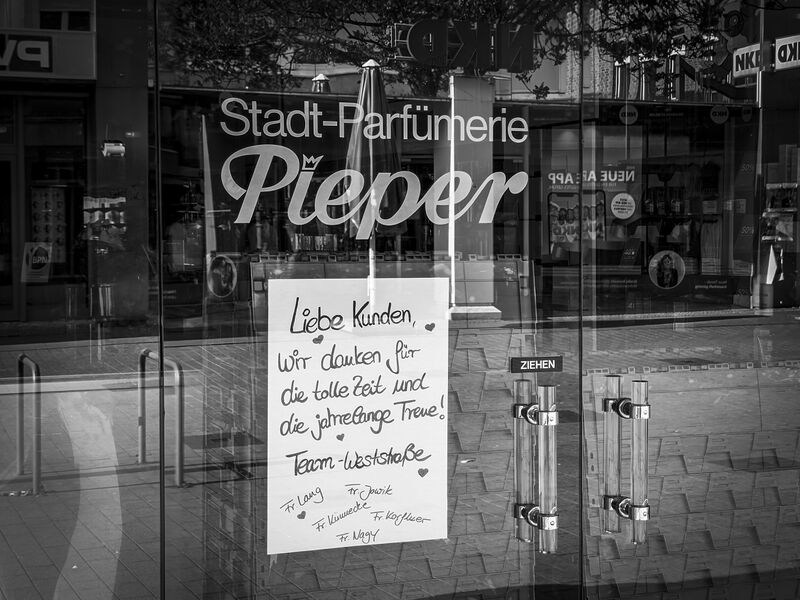 Stadt-Parfümerie
Pieper
Liebe Kunden,
wir danken für
die tolle Zeit und
die jahrelange Treue!
Team-Weststraße
Fr. Lang
Fr. Jawik
Fr. Kümmecke
Fr. Nagy
ZIEHEN
NKD
NKD
NKD
NEUE APP
BPN